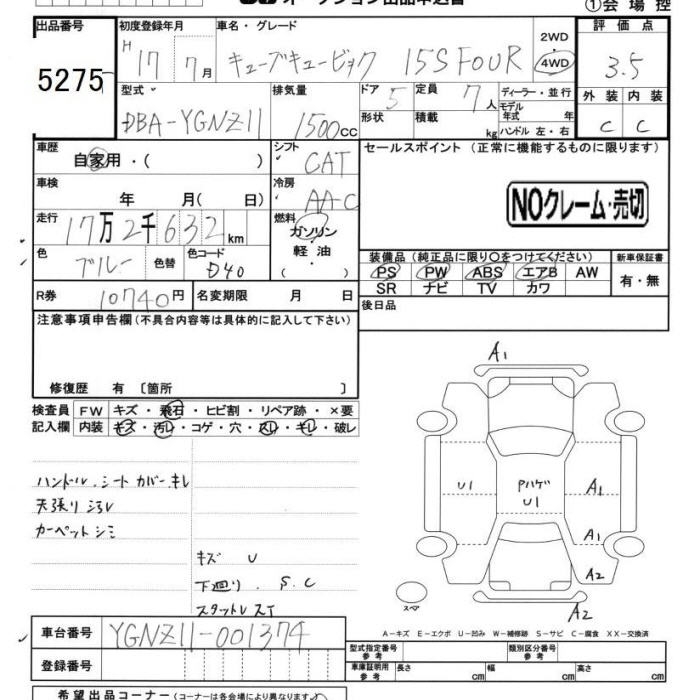 オークション出品申込書
①会場控
出品番号 初度登録年月 車名・グレード 2WD・4WD 評価点
5275 H17 7月 キューブキュービック 15S FOUR 3.5
型式 排気量 ドア 定員 ディーラー・並行 外装 内装
DBA-YGNZ11 1500cc 5 7人 モデル年式 年 C C
形状 積載 kg ハンドル 左・右
車歴 シフト セールスポイント (正常に機能するものに限ります)
自家用・( ) CAT
車検 冷房
年 月( 日) AAC NOクレーム・売切
走行 燃料
17万2千632km ガソリン
軽油
・( )
色 色替 色コード 装備品 (純正品に限り○をつけてください) 新車保証書
ブルー D40 PS PW ABS エアB AW 有・無
SR ナビ TV カワ
R券 10740円 名変期限 月 日 後日品
注意事項申告欄 (不具合内容等は具体的に記入して下さい)
修復歴 有 [箇所 ]
検査員 FW キズ・飛石・ヒビ割・リペア跡・×要
記入欄 内装 キズ・汚レ・コゲ・穴・スレ・キレ・破レ
ハンドル.シートカバーキレ
天張りヨゴレ
カーペットシミ
キズ U
下廻り.S.C
A1
U1 Pハゲ A1
U1
A1
A2
スペア A2
A-キズ E-エクボ U-凹み W-補修跡 S-サビ C-腐食 XX-交換済
車台番号 YGNZ11-001374
登録番号
型式指定番号 参考 類別区分番号 参考
車庫証明用 参考 長さ cm 幅 cm 高さ cm
希望出品コーナー (コーナーは各会場により異なります。)